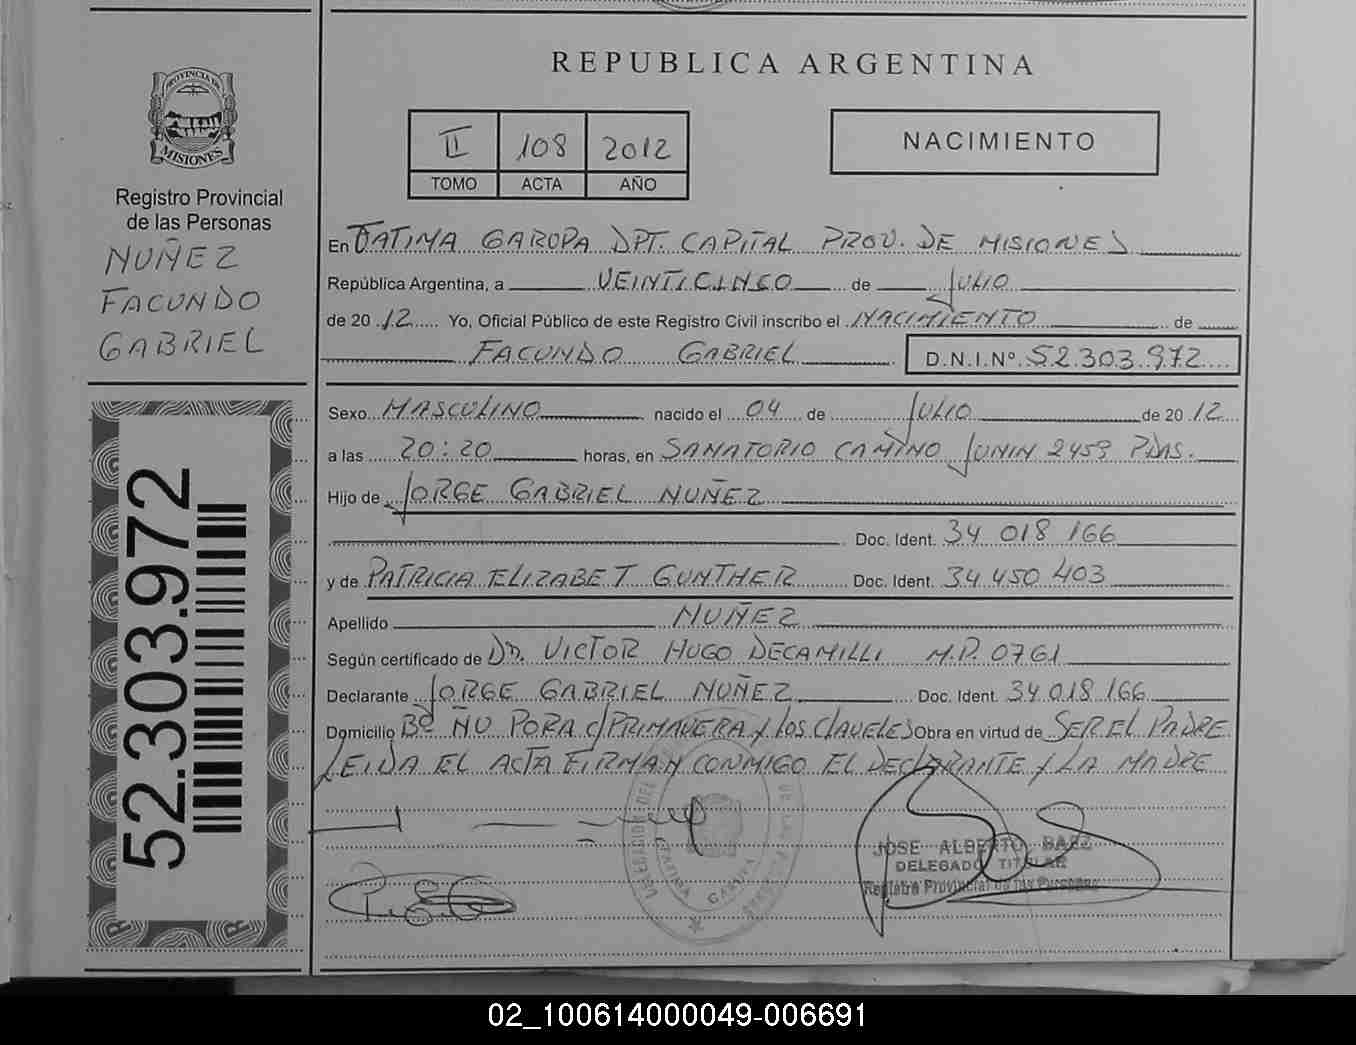 REPUBLICA ARGENTINA
PROVINCIA DE
MISIONES
Registro Provincial
de las Personas
NUÑEZ
FACUNDO
GABRIEL
52.303.972
II 108 2012
TOMO ACTA AÑO
NACIMIENTO
En FATIMA GAROPA DPT. CAPITAL PROV. DE MISIONES
República Argentina, a VEINTICINCO de JULIO
de 20 12 Yo, Oficial Público de este Registro Civil inscribo el NACIMIENTO de
FACUNDO GABRIEL D.N.I.Nº. 52.303.972
Sexo MASCULINO nacido el 04 de JULIO de 20 12
a las 20:20 horas, en SANATORIO CAMINO JUNIN 2459 PDAS.
Hijo de JORGE GABRIEL NUÑEZ
Doc. Ident. 34 018 166
y de PATRICIA ELIZABET GUNTHER Doc. Ident. 34 450 403
Apellido NUÑEZ
Según certificado de DR. VICTOR HUGO DECAMILLI M.P. 0761
Declarante JORGE GABRIEL NUÑEZ Doc. Ident. 34 018 166
Domicilio Bº ÑU PORA C/PRIMAVERA Y LOS CLAVELES Obra en virtud de SER EL PADRE
LEIDA EL ACTA FIRMAN CONMIGO EL DECLARANTE Y LA MADRE
JOSE ALBERTO BAEZ
DELEGADO TITULAR
Registro Provincial de las Personas
02_100614000049-006691